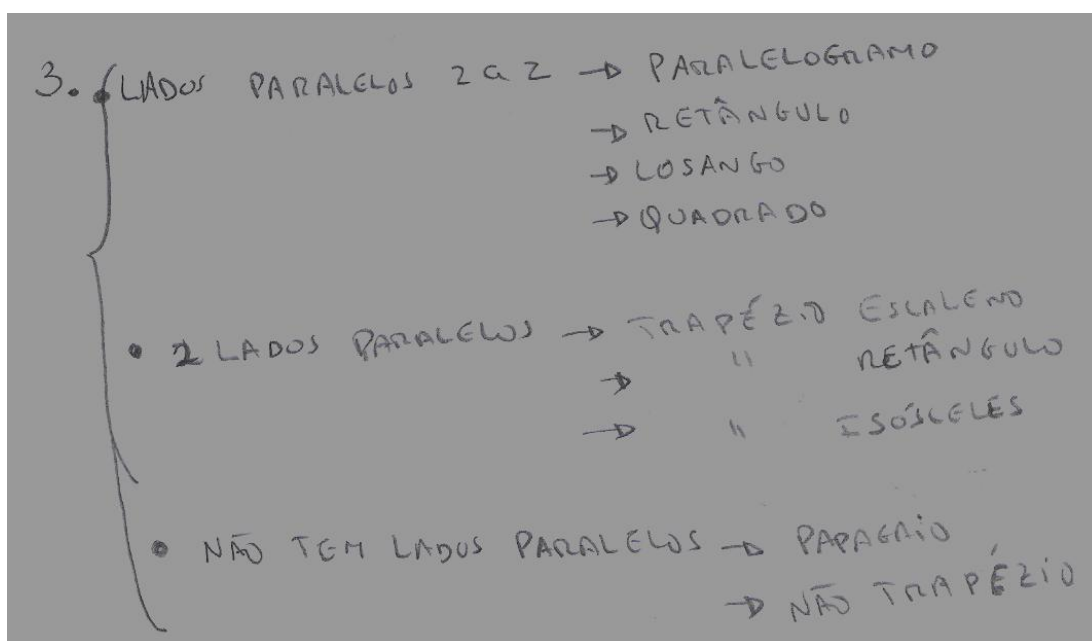 3. • LADOS PARALELOS 2 a 2 → PARALELOGRAMO
→ RETÂNGULO
→ LOSANGO
→ QUADRADO
• 2 LADOS PARALELOS → TRAPÉZIO ESCALENO
→ " RETÂNGULO
→ " ISÓSCELES
• NÃO TEM LADOS PARALELOS → PAPAGAIO
→ NÃO TRAPÉZIO